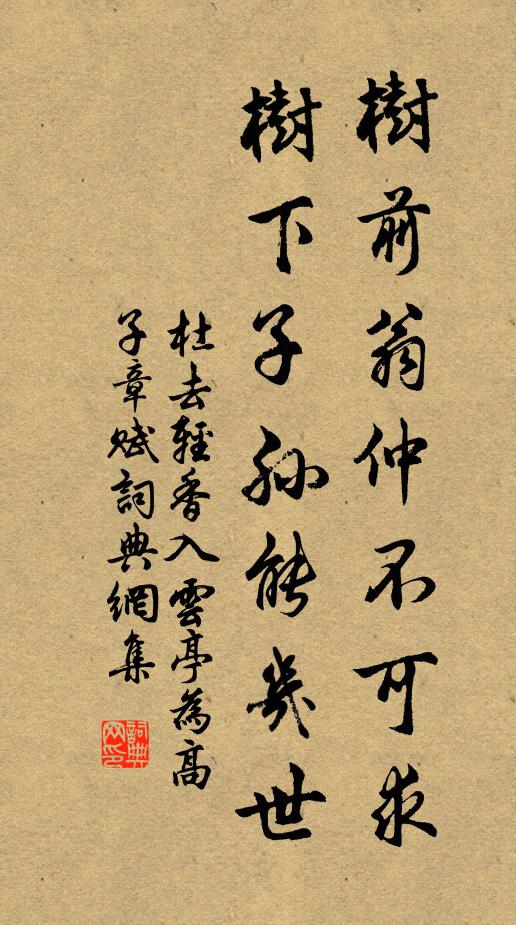 樹前翁仲不可求
樹下子孫能幾世
杜去輕香入雲亭為高
子章賦詞典網集
詞典网印